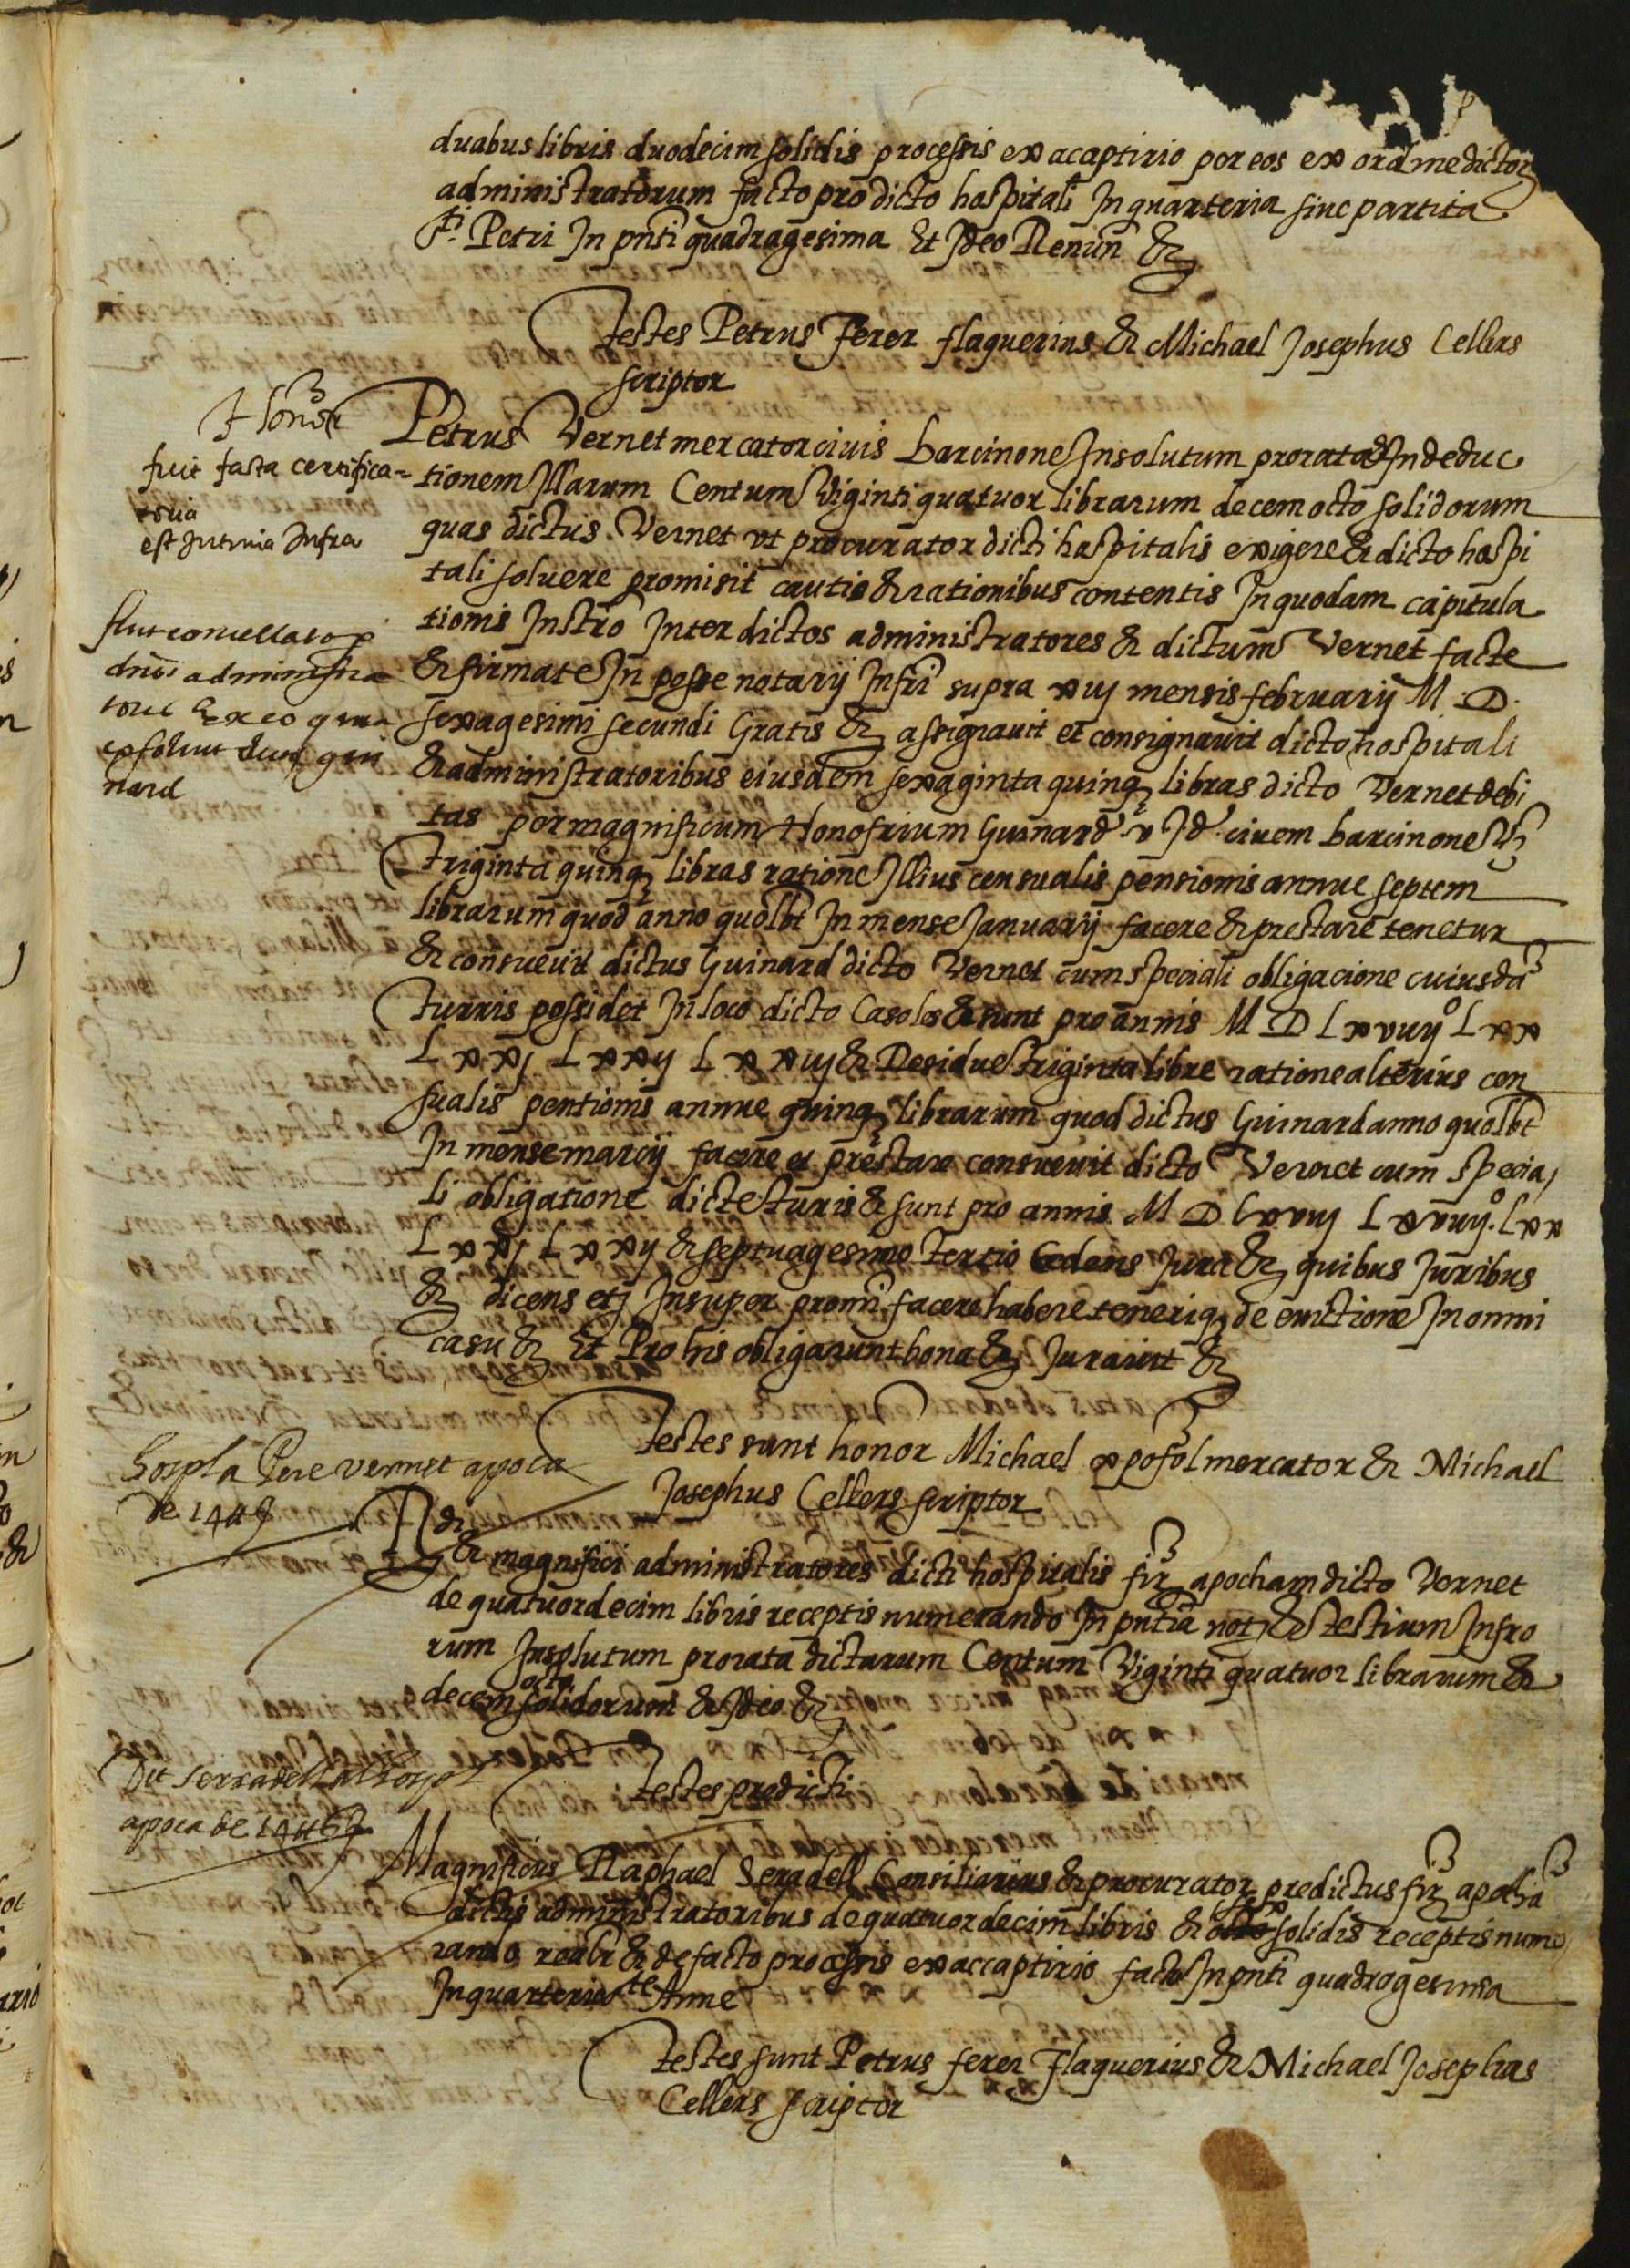 duabus libris duodecim solidis processis ex acaptirio per eos ex ordine dictor
administratorum facto pro dicto hospitali In quarteria sive partita
sti Petri In pnti quadragesima Et Ideo Renun &
Testes Petrus Ferer flaquerius & Michael Josephus Cellers
scriptor
fuit facta certifica=
est Infra
Petrus Vernet mercator civis barcinone Insolutum prorata & Indeduc
tionem Illarum Centum Viginti quatuor librarum decem octo solidorum
quas dictus Vernet ut procurator dicti hospitalis exigere & dicto hospi
tali solvere promisit cautis & rationibus contentis In quodam capitula
tionis Instro Inter dictos administratores & dictum Vernet facte
& firmate In posse notarij Infri supra xvij mensis februarij M D
sexagesimi secundi Gratis & assignavit et consignavit dicto hospitali
& administratoribus eiusdem sexaginta quinq libras dicto Vernet debi
tas per magnificum Honofrium Guinard v J d civem barcinone
Triginta quinq libras ratione Illius censualis pensionis annue septem
librarum quod anno quolbt In mense Januarij facere & prestare tenetur
& consuevit dictus Guinard dicto Vernet cum speciali obligacione cuiusda
Turris possidet In loco dicto Casoles & sunt pro annis M D Lxviiij Lxx
Lxxj Lxxij Lxxiij & Residue Triginta libre ratione alterius cen
sualis pentionis annue quinq librarum quod dictus Guinard anno quolbt
In mense marcij facere et prestare consuevit dicto Vernet cum specia
li obligatione dicte Turis & sunt pro annis M D Lxviij Lxviiij Lxx
Lxxj Lxxij & septuagesimo Tertio Cedens Jura & quibus Juribus
& dicens etj Insuper promi facere habere teneriq de evictione In omni
casu & Et Pro his obligarunt bona & Juravit &
Testes sunt honor Michael exposol mercator & Michael
Josephus Cellers scriptor
Pere vernet apoca
de 14
Dicti
& magnifici administratores dicti hospitalis fir apocham dicto Vernet
de quatuordecim libris receptis numerando In pntia not & testium Infro
rum Insolutum prorata dictarum Centum Viginti quatuor librarum &
decem octo solidorum & Ideo &
Testes predicti
apoca de 14
Magnificus Raphael Seradell Consiliarius & procurator predictus fir apocha
dictis administratoribus de quatuordecim libris & sex solidis receptis nume
rando realr & de facto processis ex accaptirio facto In pnti quadragesima
In quarterio ste Anne
Testes sunt Petrus ferer Flaquerius & Michael Josephus
Cellers scriptor